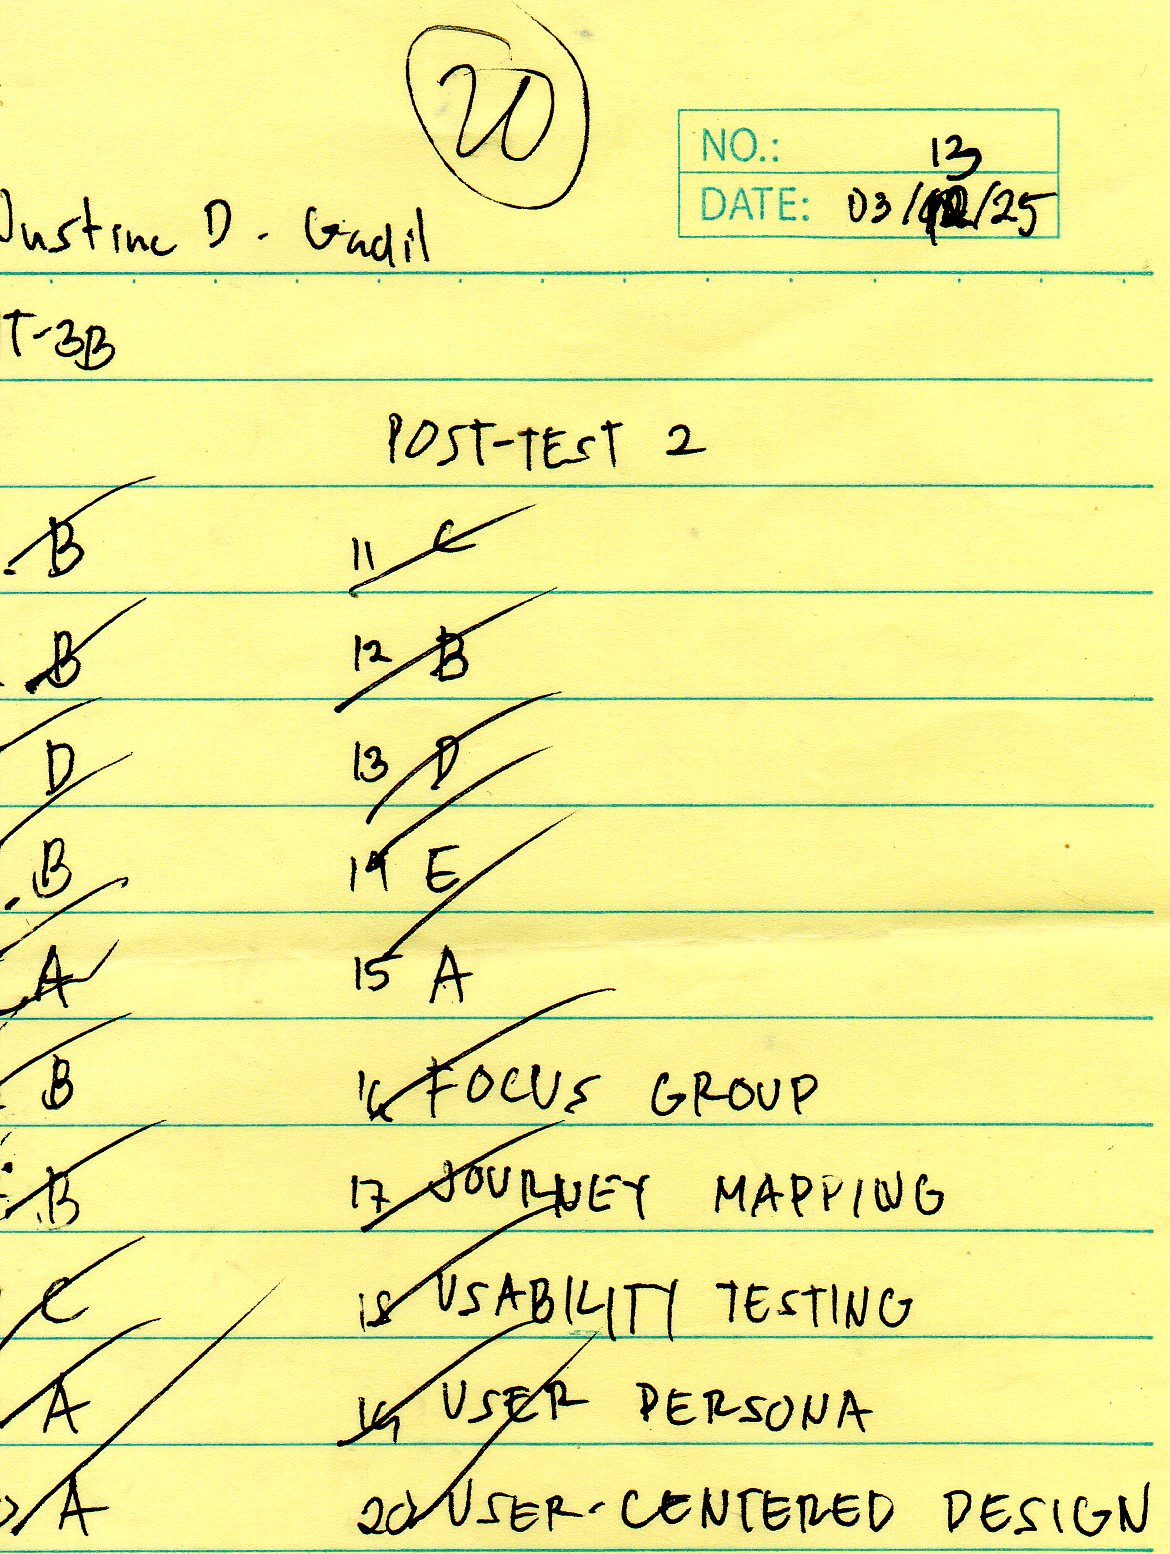 20
NO.: 13
DATE: 03/12/25
Justine D. Gadil
T-3B
POST-TEST 2
B
11 C
B
12 B
D
13 D
B
14 E
A
15 A
B
16 FOCUS GROUP
B
17 JOURNEY MAPPING
C
18 USABILITY TESTING
A
19 USER PERSONA
A
20 USER-CENTERED DESIGN